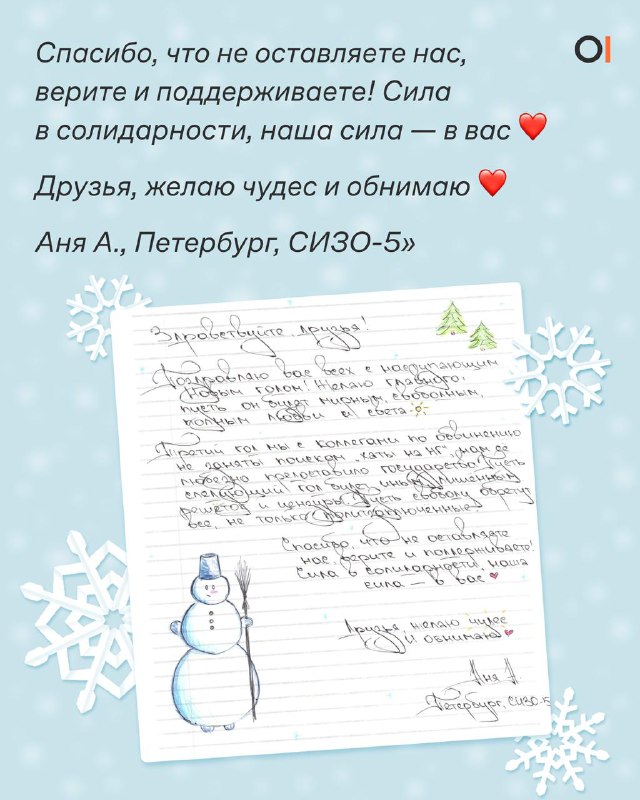 Спасибо, что не оставляете нас,
верите и поддерживаете! Сила
в солидарности, наша сила — в вас ❤️
Друзья, желаю чудес и обнимаю ❤️
Аня А., Петербург, СИЗО-5»
OI
Здравствуйте, друзья!
Поздравляю вас всех с наступающим
Новым годом! Желаю главного:
пусть он будет мирным, свободным,
полным любви и света
Третий год мы с коллегами по обвинению
не заняты поиском "хаты на НГ", нам ее
любезно предоставило государство. Пусть
следующий год будет иным, лишенным
решеток и цензуры. Пусть свободу обретут
все, не только политзаключенные.
Спасибо, что не оставляете
нас, верите и поддерживаете!
Сила в солидарности, наша
сила — в вас
Друзья, желаю чудес
и обнимаю
Аня А.
Петербург, СИЗО-5